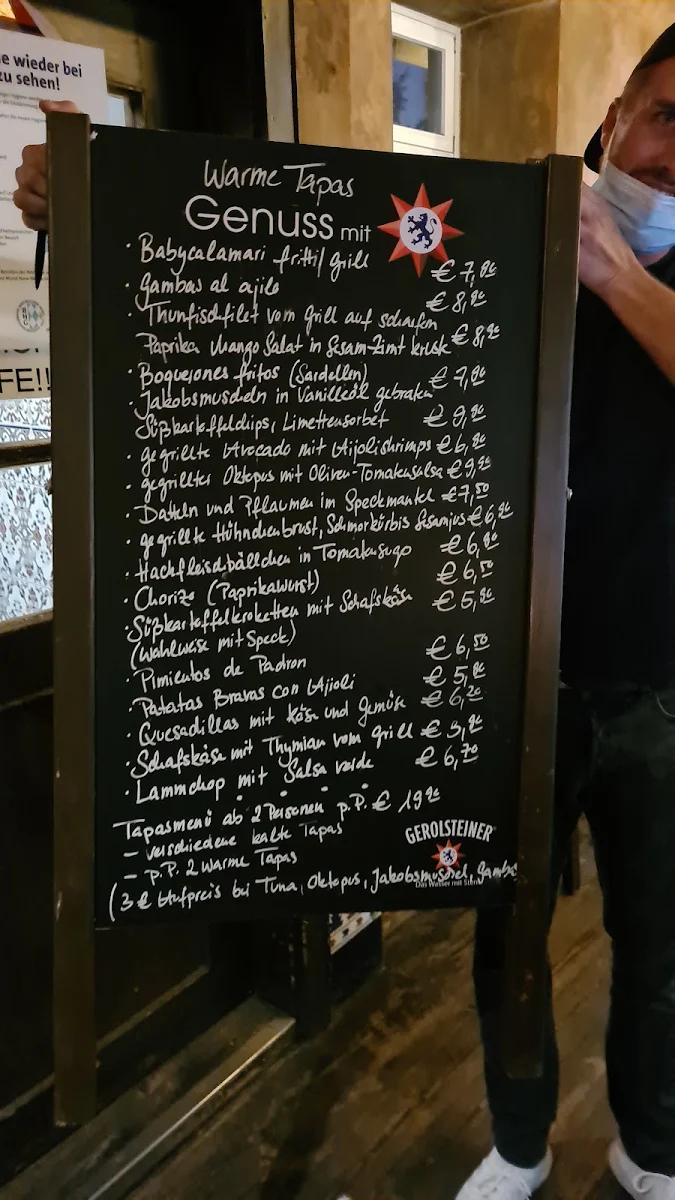 e wieder bei
zu sehen!
FE!!
Warme Tapas
Genuss mit
· Babycalamari fritti/grill € 7,90
· Gambas al ajilo € 8,90
· Thunfischfilet vom Grill auf scharfen
Paprika Mango Salat in Sesam-Zimt kruste € 8,90
· Boquerones fritos (Sardellen) € 7,90
· Jakobsmuscheln in Vanilleöl gebraten
Süßkartoffelchips, Limettensorbet € 9,90
· gegrillte Avocado mit Aijolishrimps € 6,90
· gegrillter Oktopus mit Oliven-Tomatensalsa € 9,90
· Datteln und Pflaumen im Speckmantel € 7,50
· gegrillte Hühnchenbrust, Schmorkürbis Sesamjus € 6,90
· Hackfleischbällchen in Tomatensugo € 6,90
· Chorizo (Paprikawurst) € 6,50
· Süßkartoffelkroketten mit Schafskäse € 5,90
(wahlweise mit Speck)
· Pimientos de Padron € 6,50
· Patatas Bravas con Aijoli € 5,90
· Quesadillas mit Käse und Gemüse € 6,20
· Schafskäse mit Thymian vom grill € 5,90
· Lammchop mit Salsa verde € 6,70
Tapasmenü ab 2 Personen p.P. € 19,90
- verschiedene kalte Tapas
- p.P. 2 Warme Tapas
(3 € Aufpreis bei Tuna, Oktopus, Jakobsmuschel, Gambas
GEROLSTEINER
Das Wasser mit Stern